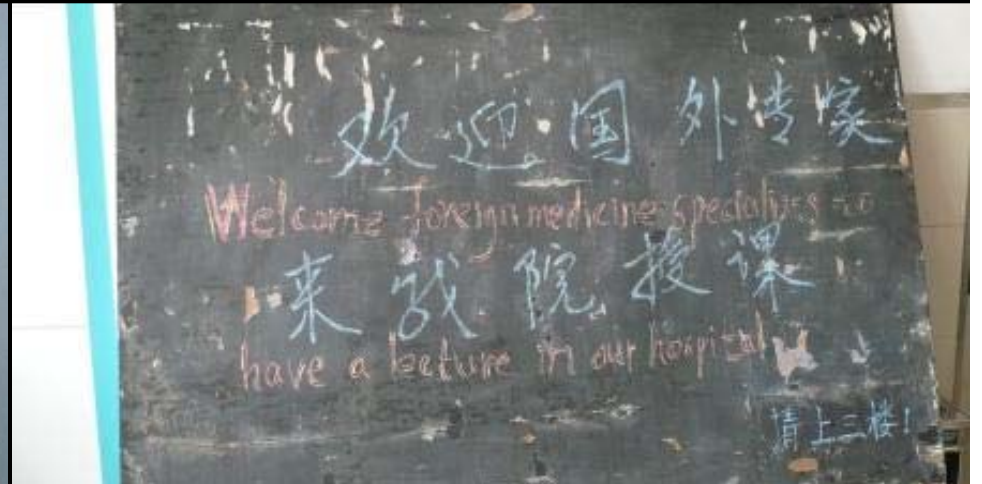 欢迎国外专家
Welcome foreign medicine specialists to
来我院授课
have a lecture in our hospital
请上二楼!